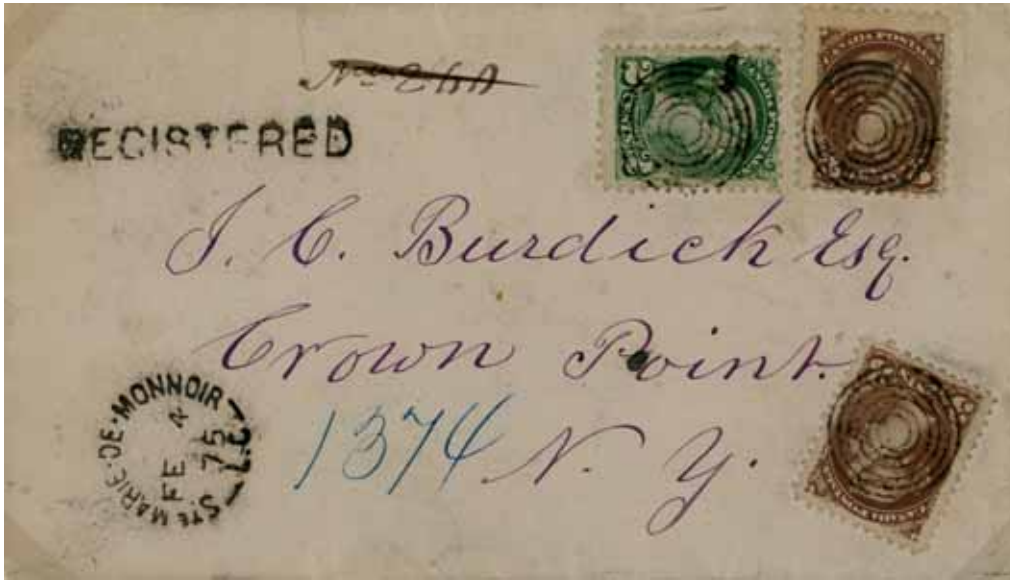 No 260
REGISTERED
CANADA POSTAGE
J. C. Burdick Esq.
Crown Point.
1374 N. Y.
STE MARIE-DE-MONNOIR L.C.
FE 4
75